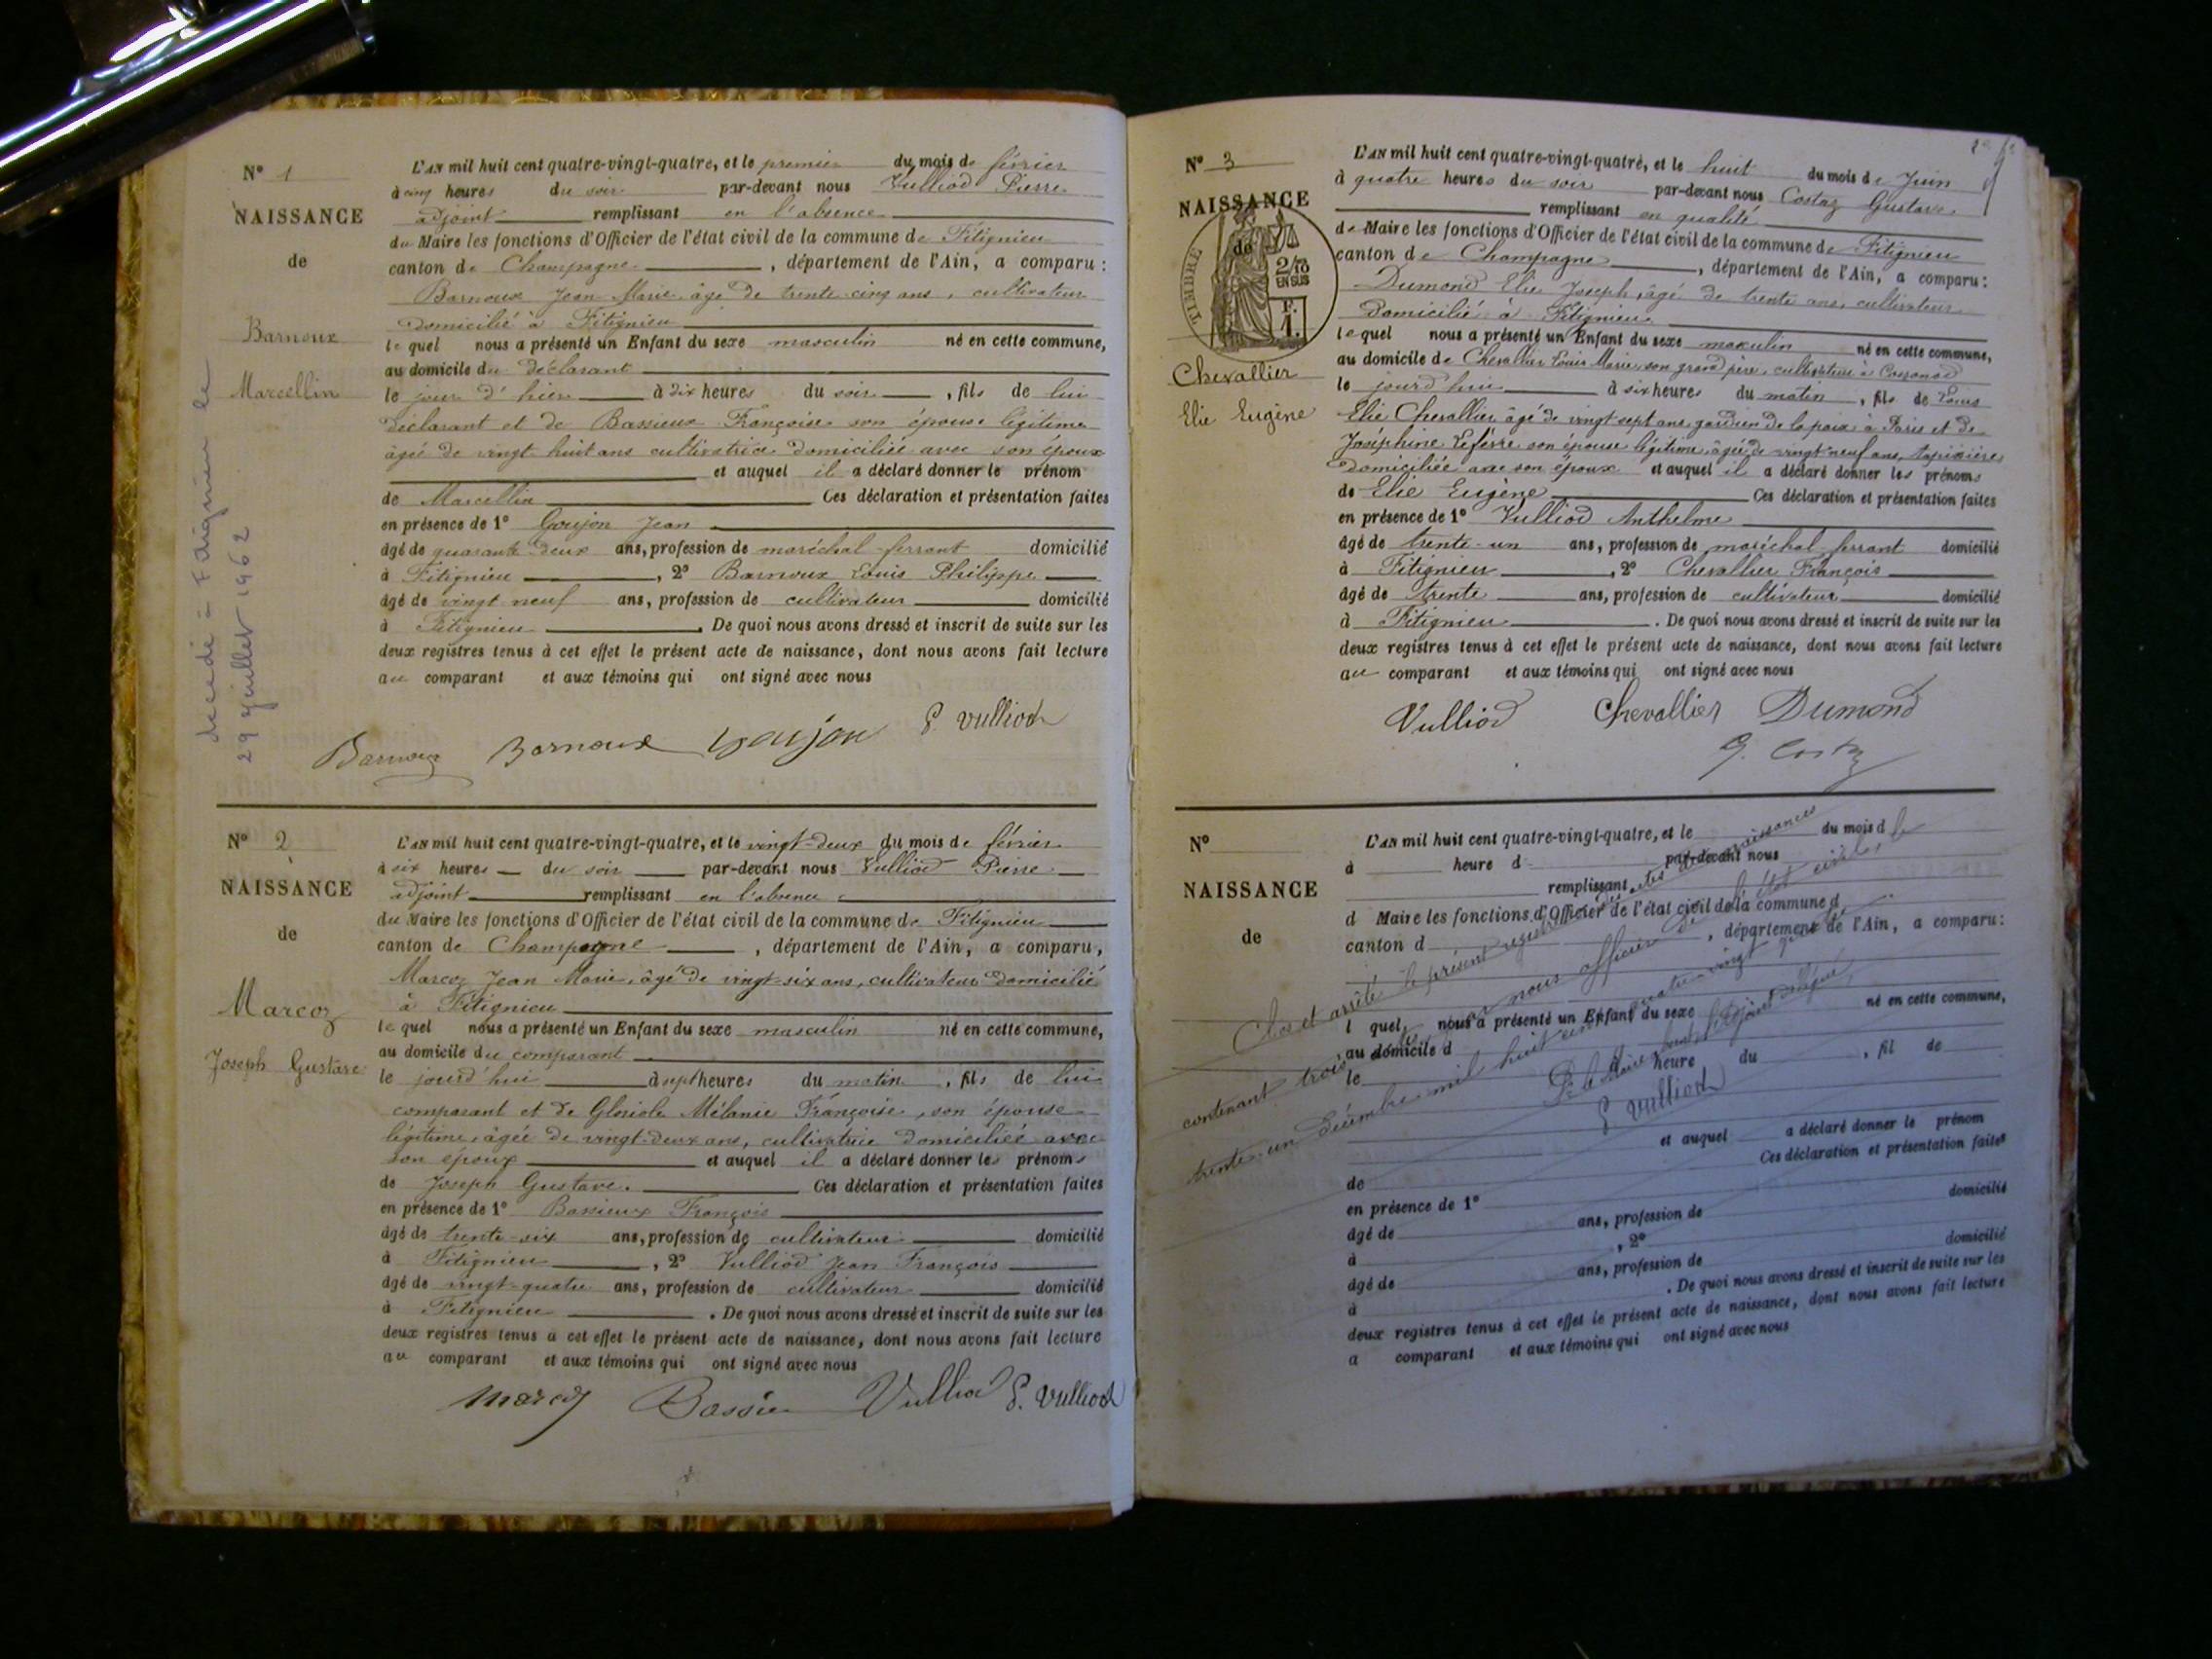 N° 1
NAISSANCE
de
Barnoux
Marcellin
décédé à Fitignieu le
29 juillet 1962
L'AN mil huit cent quatre-vingt-quatre, et le premier du mois de février
à cinq heures du soir par-devant nous Vulliod Pierre
adjoint remplissant en l'absence
du Maire les fonctions d'Officier de l'état civil de la commune de Fitignieu
canton de Champagne, département de l'Ain, a comparu :
Barnoux Jean Marie, âgé de trente-cinq ans, cultivateur
domicilié à Fitignieu
lequel nous a présenté un Enfant du sexe masculin né en cette commune,
au domicile du déclarant
le jour d'hier à dix heures du soir, fils de lui
déclarant et de Bassieux Françoise son épouse légitime
âgée de vingt huit ans cultivatrice domiciliée avec son époux
et auquel il a déclaré donner le prénom
de Marcellin Ces déclaration et présentation faites
en présence de 1° Goujon Jean
âgé de quarante-deux ans, profession de maréchal-ferrant domicilié
à Fitignieu, 2° Barnoux Louis Philippe
âgé de vingt neuf ans, profession de cultivateur domicilié
à Fitignieu. De quoi nous avons dressé et inscrit de suite sur les
deux registres tenus à cet effet le présent acte de naissance, dont nous avons fait lecture
au comparant et aux témoins qui ont signé avec nous
Barnoux Barnoux Goujon P. Vulliod
N° 2
NAISSANCE
de
Marcoz
Joseph Gustave
L'AN mil huit cent quatre-vingt-quatre, et le vingt-deux du mois de février
à six heures du soir par-devant nous Vulliod Pierre
adjoint remplissant en l'absence
du Maire les fonctions d'Officier de l'état civil de la commune de Fitignieu
canton de Champagne, département de l'Ain, a comparu,
Marcoz Jean Marie, âgé de vingt-six ans, cultivateur domicilié
à Fitignieu
lequel nous a présenté un Enfant du sexe masculin né en cette commune,
au domicile du comparant
le jourd'hui à sept heures du matin, fils de lui
comparant et de Gloriole Mélanie Françoise, son épouse
légitime, âgée de vingt-deux ans, cultivatrice domiciliée avec
son époux et auquel il a déclaré donner les prénoms
de Joseph Gustave. Ces déclaration et présentation faites
en présence de 1° Bassieux François
âgé de trente-six ans, profession de cultivateur domicilié
à Fitignieu, 2° Vulliod Jean François
âgé de vingt-quatre ans, profession de cultivateur domicilié
à Fitignieu. De quoi nous avons dressé et inscrit de suite sur les
deux registres tenus à cet effet le présent acte de naissance, dont nous avons fait lecture
au comparant et aux témoins qui ont signé avec nous
Marcoz Bassieu Vulliod P. Vulliod
N° 3
NAISSANCE
de
TIMBRE
2/10
EN SUS
F.
1.
Chevallier
Elie Eugène
L'AN mil huit cent quatre-vingt-quatre, et le huit du mois de Juin
à quatre heures du soir par-devant nous Costaz Gustave
remplissant en qualité
de Maire les fonctions d'Officier de l'état civil de la commune de Fitignieu
canton de Champagne, département de l'Ain, a comparu :
Dumond Elie Joseph, âgé de trente ans, cultivateur
domicilié à Fitignieu
lequel nous a présenté un Enfant du sexe masculin né en cette commune,
au domicile de Chevallier Louis Marie, son grand père, cultivateur à
le jourd'hui à six heures du matin, fils de Louis
Elie Chevallier, âgé de vingt sept ans, gardien de la paix à Paris et de
Joséphine Lefèvre son épouse légitime, âgée de vingt-neuf ans, tapissière
domiciliée avec son époux et auquel il a déclaré donner les prénoms
de Elie Eugène Ces déclaration et présentation faites
en présence de 1° Vulliod Anthelme
âgé de trente-un ans, profession de maréchal ferrant domicilié
à Fitignieu, 2° Chevallier François
âgé de trente ans, profession de cultivateur domicilié
à Fitignieu. De quoi nous avons dressé et inscrit de suite sur les
deux registres tenus à cet effet le présent acte de naissance, dont nous avons fait lecture
au comparant et aux témoins qui ont signé avec nous
Vulliod Chevallier Dumond
G. Costaz
N°
NAISSANCE
de
L'AN mil huit cent quatre-vingt-quatre, et le du mois d
à heure d par-devant nous
remplissant
d Maire les fonctions d'Officier de l'état civil de la commune d
canton d , département de l'Ain, a comparu :
l quel nous a présenté un Enfant du sexe né en cette commune,
au domicile d
le à heure du , fil de
et auquel a déclaré donner le prénom
de Ces déclaration et présentation faites
en présence de 1°
âgé de ans, profession de domicilié
à , 2°
âgé de ans, profession de domicilié
à . De quoi nous avons dressé et inscrit de suite sur les
deux registres tenus à cet effet le présent acte de naissance, dont nous avons fait lecture
a comparant et aux témoins qui ont signé avec nous
Clos et arrêté le présent registre des actes de naissances
contenant trois actes par nous officier de l'état civil, le
trente-un Décembre mil huit cent quatre-vingt quatre
P. le Maire absent, l'adjoint délégué,
P. Vulliod